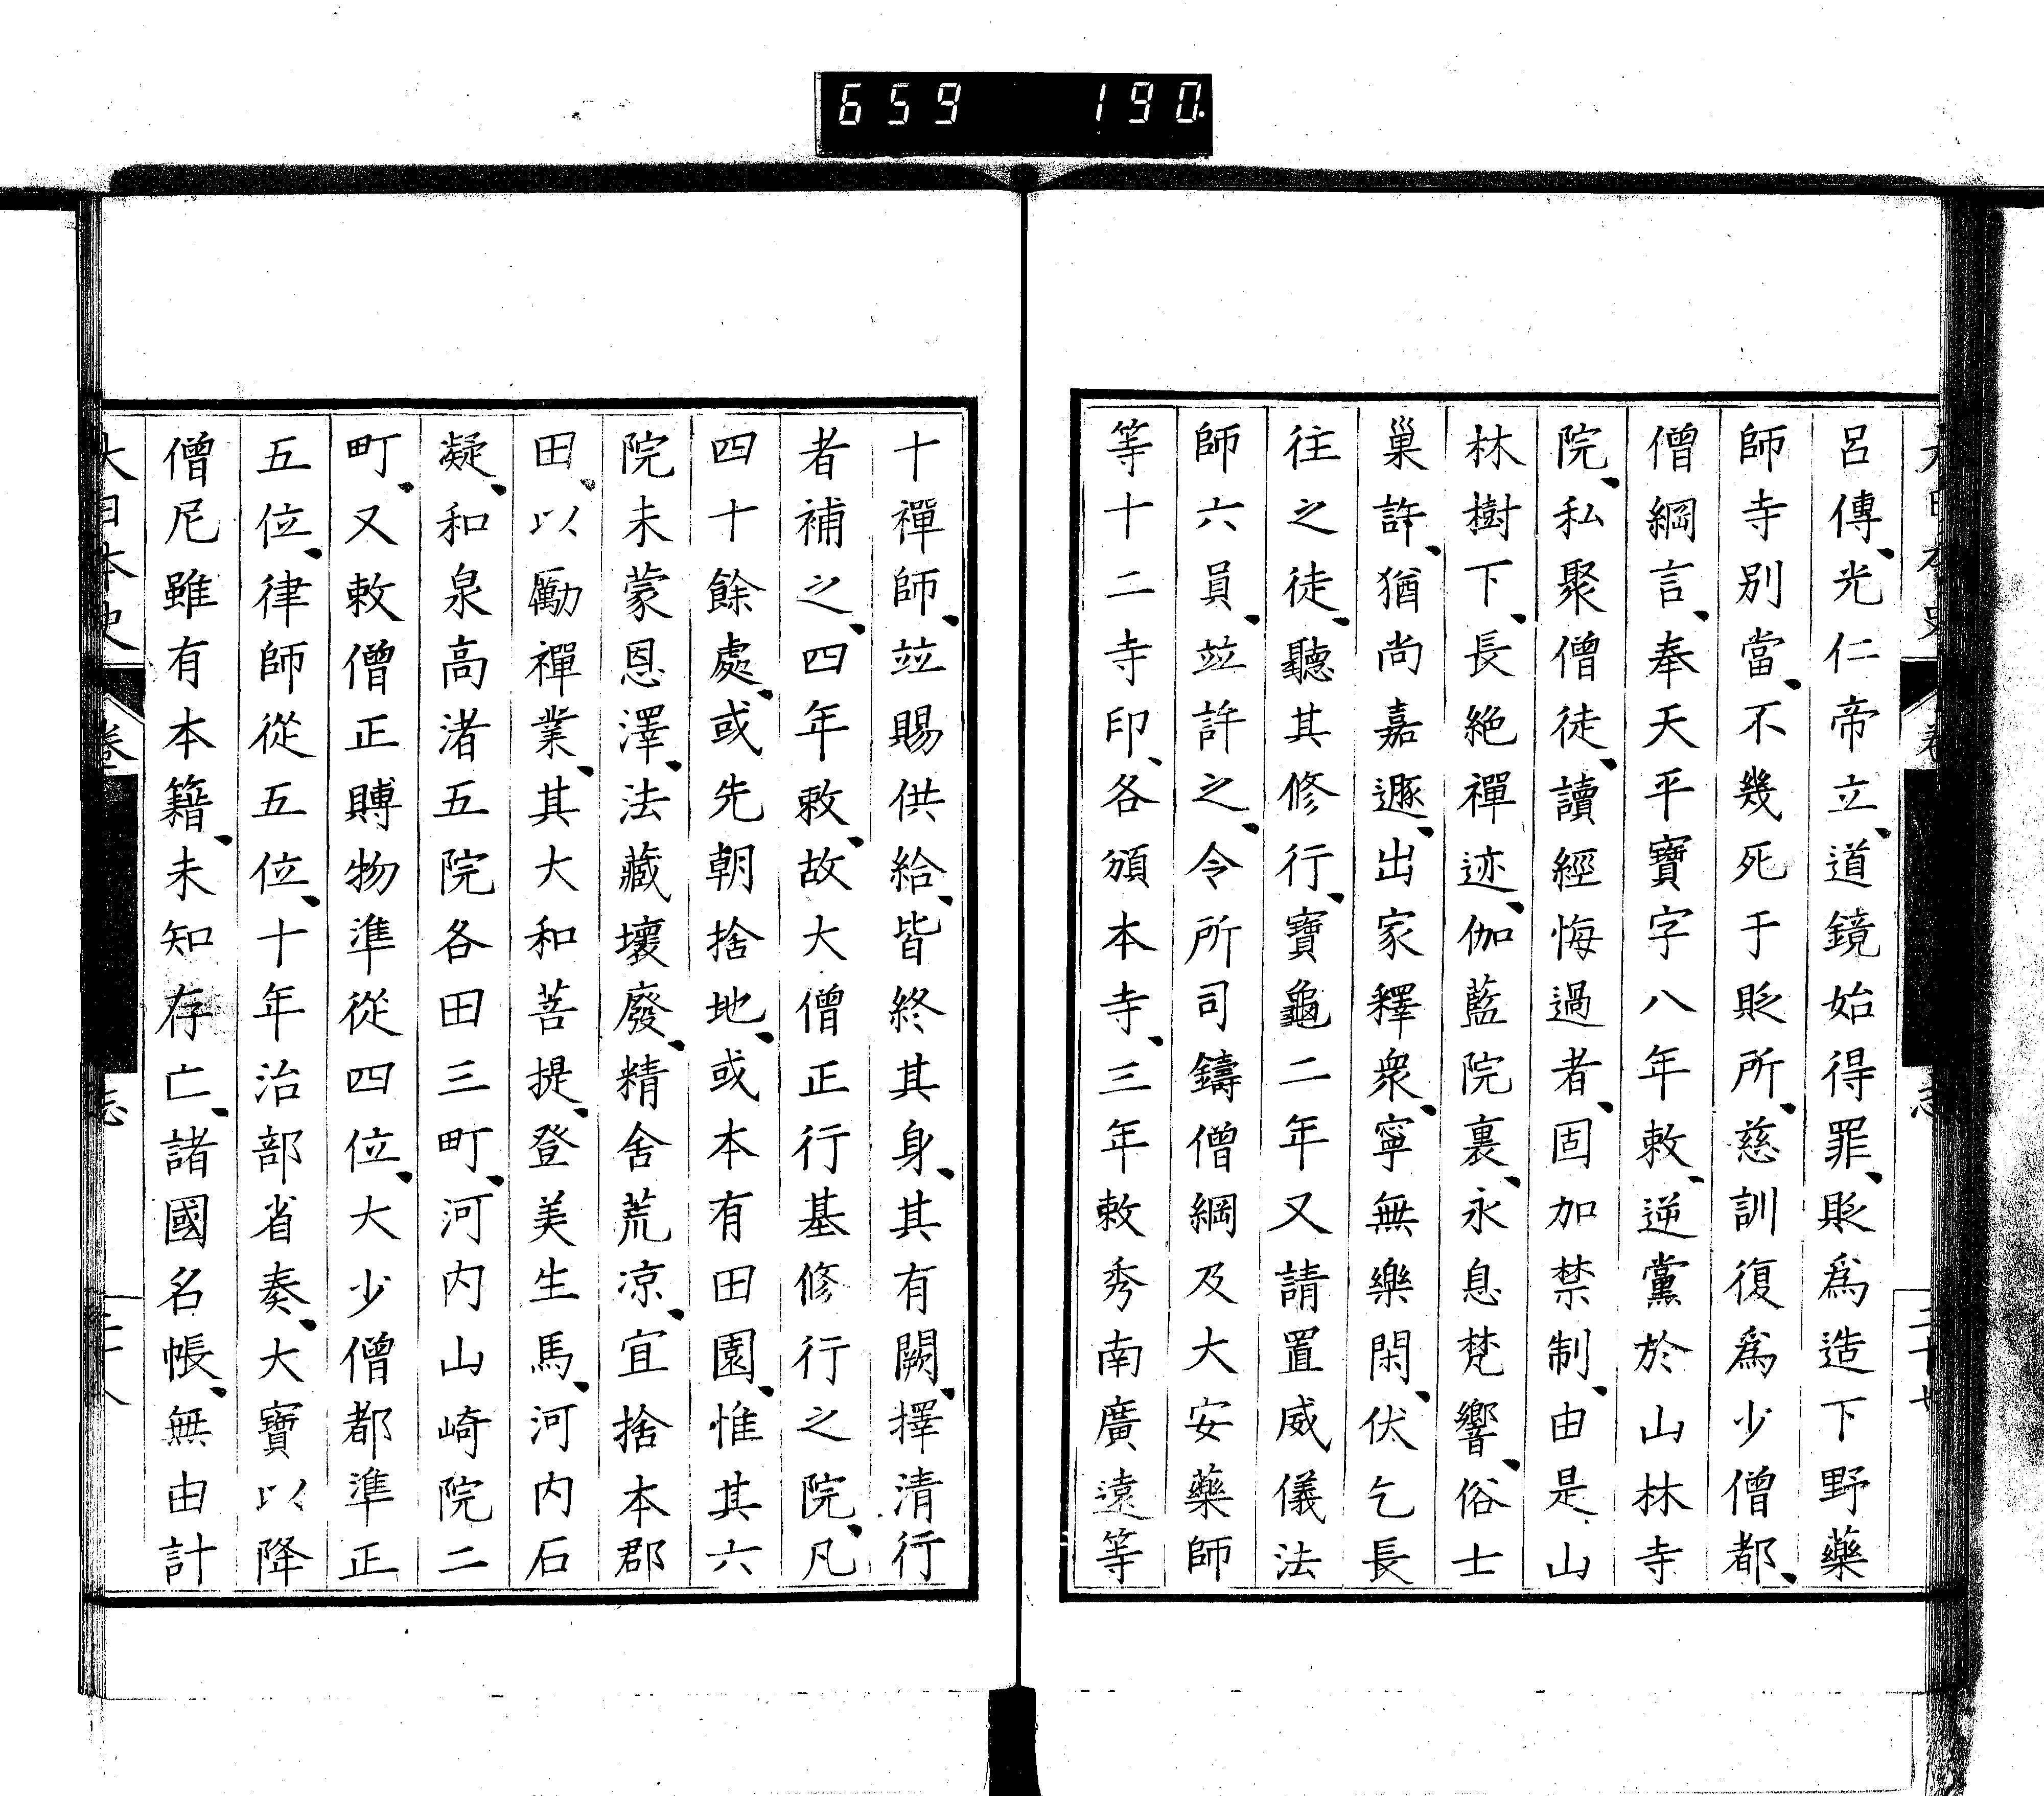 659 190.
呂傳、光仁帝立、道鏡始得罪、貶爲造下野藥
師寺別當、不幾死于貶所、慈訓復爲少僧都、
僧綱言、奉天平寶字八年敕、逆黨於山林寺
院、私聚僧徒、讀經悔過者、固加禁制、由是山
林樹下、長絕禪迹、伽藍院裏、永息梵響、俗士
巢許、猶尚嘉遯、出家釋衆、寧無樂閑、伏乞長
往之徒、聽其修行、寶龜二年又請置威儀法
師六員、竝許之、令所司鑄僧綱及大安藥師
等十二寺印、各頒本寺、三年敕秀南廣遠等
十禪師、竝賜供給、皆終其身、其有闕、擇清行
者補之、四年敕、故大僧正行基修行之院、凡
四十餘處、或先朝捨地、或本有田園、惟其六
院未蒙恩澤、法藏壞廢、精舍荒凉、宜捨本郡
田、以勵禪業、其大和菩提、登美生馬、河內石
凝、和泉高渚五院各田三町、河內山崎院二
町、又敕僧正賻物準從四位、大少僧都準正
五位、律師從五位、十年治部省奏、大寶以降
僧尼雖有本籍、未知存亡、諸國名帳、無由計
大日本史 卷 志